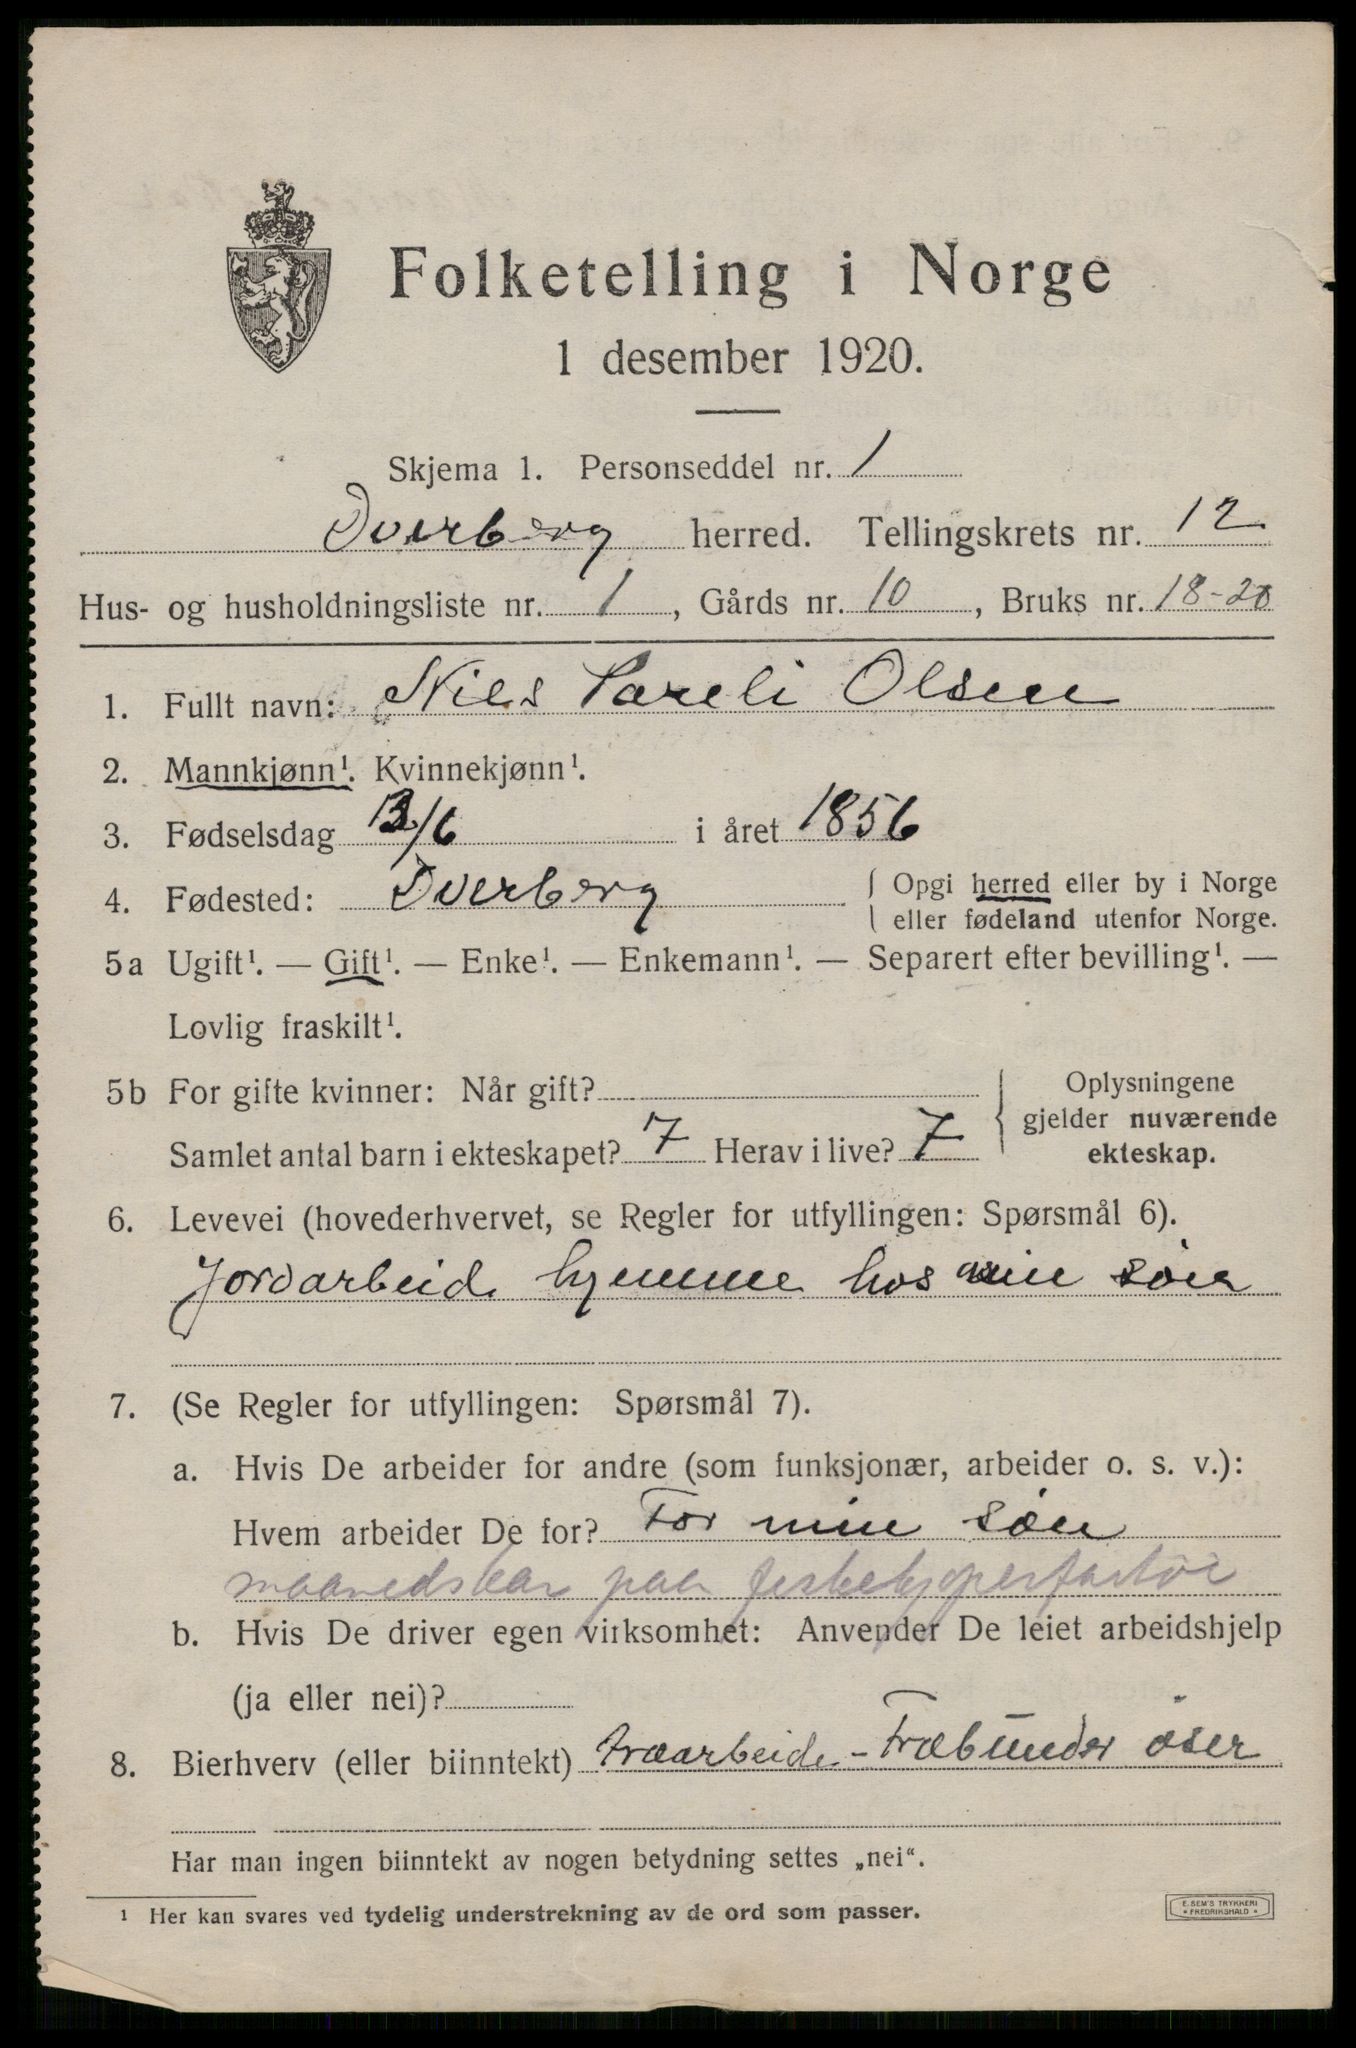 Folketelling i Norge
1 desember 1920.
Skjema 1. Personseddel nr. 1
Dverberg herred. Tellingskrets nr. 12
Hus- og husholdningsliste nr. 1, Gårds nr. 10, Bruks nr. 18-20
1. Fullt navn: Nils Pareli Olsen
2. Mannkjønn¹. Kvinnekjønn¹.
3. Fødselsdag 13/6 i året 1856
4. Fødested: Dverberg { Opgi herred eller by i Norge
eller fødeland utenfor Norge.
5a Ugift¹. — Gift¹. — Enke¹. — Enkemann¹. — Separert efter bevilling¹. —
Lovlig fraskilt¹.
5b For gifte kvinner: Når gift?
Samlet antal barn i ekteskapet? 7 Herav i live? 7
{ Oplysningene
gjelder nuværende
ekteskap.
6. Levevei (hovederhvervet, se Regler for utfyllingen: Spørsmål 6).
Jordarbeide hjemme hos min søn
7. (Se Regler for utfyllingen: Spørsmål 7).
a. Hvis De arbeider for andre (som funksjonær, arbeider o. s. v.):
Hvem arbeider De for? For min søn
paa
b. Hvis De driver egen virksomhet: Anvender De leiet arbeidshjelp
(ja eller nei)?
8. Bierhverv (eller biinntekt) træarbeide - øser
Har man ingen biinntekt av nogen betydning settes „nei“.
¹ Her kan svares ved tydelig understrekning av de ord som passer.
E. SEM'S TRYKKERI
* FREDRIKSHALD *